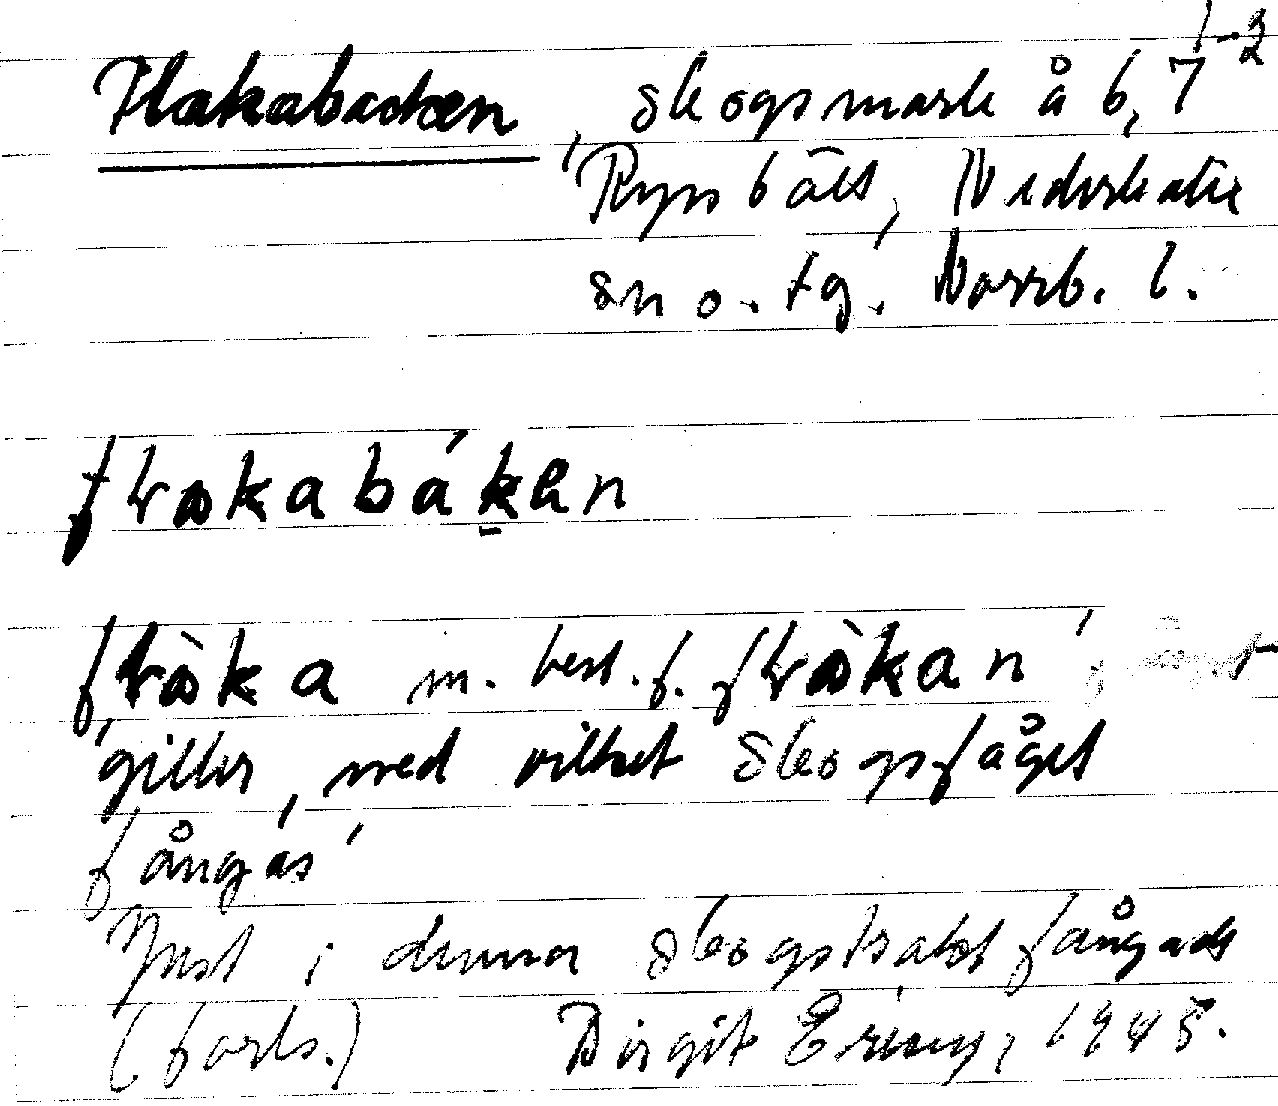 Flakabacken, skogsmark å 6, 7 1-2
Rynbält, Nederkalix
sn o. tg. Norrb. l.
flakabáken
flàka m. best. f. flàkan '
giller, med vilket skogsfågel
fångas'
Just i denna skogstrakt fångade
(forts.) Birgit Ericus, 1945.